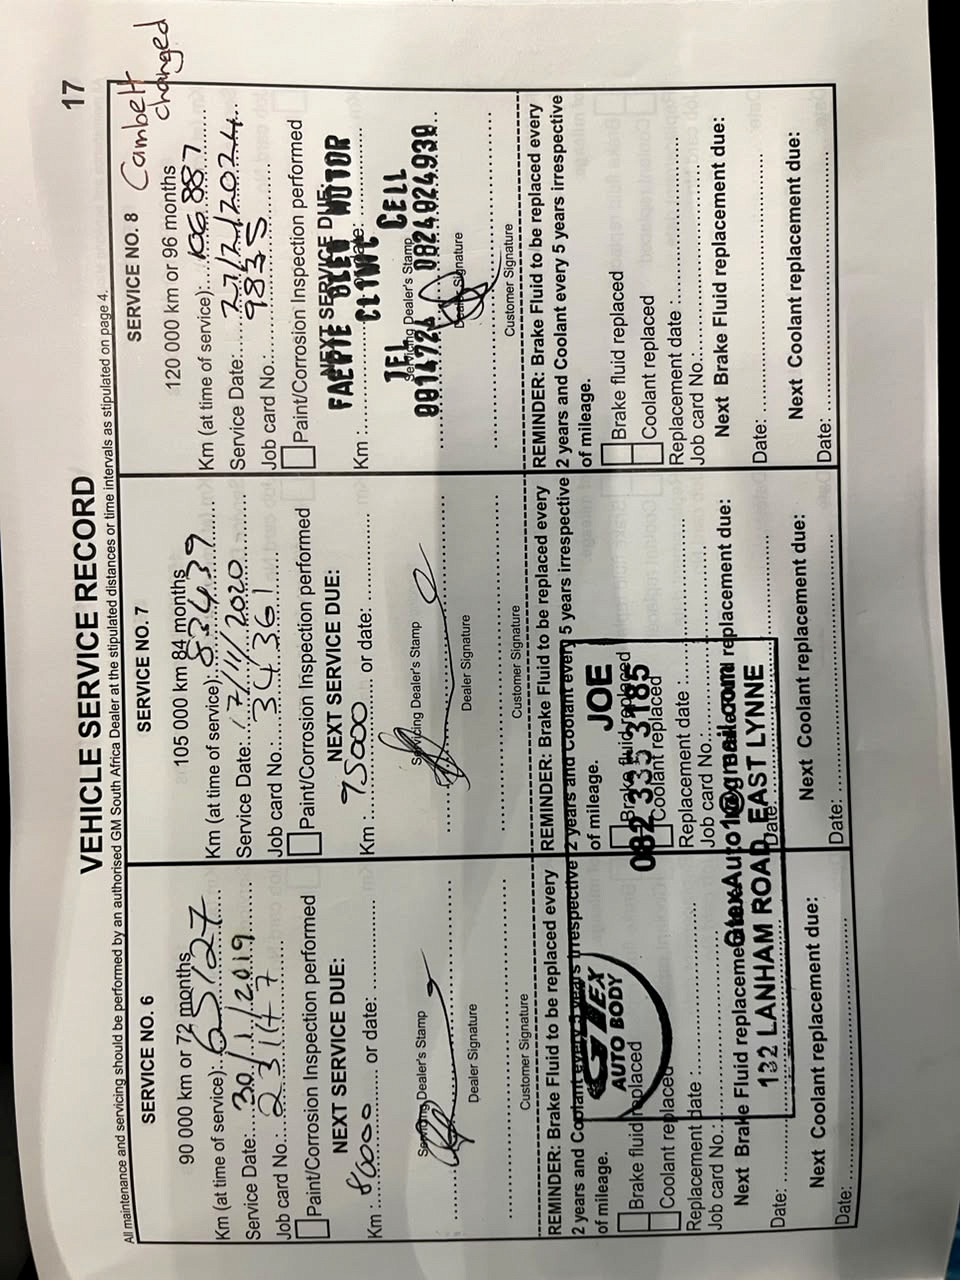 17
VEHICLE SERVICE RECORD
All maintenance and servicing should be performed by an authorised GM South Africa Dealer at the stipulated distances or time intervals as stipulated on page 4.
SERVICE NO. 6
90 000 km or 72 months
Km (at time of service): 65127
Service Date: 30/1/2019
Job card No.: 23147
Paint/Corrosion Inspection performed
NEXT SERVICE DUE:
Km : 80000 or date:
Servicing Dealer's Stamp
Dealer Signature
Customer Signature
REMINDER: Brake Fluid to be replaced every
2 years and Coolant every 5 years irrespective
of mileage.
Brake fluid replaced
Coolant replaced
Replacement date :
Job card No.:
Next Brake Fluid replacement due:
Date:
Next Coolant replacement due:
Date:
SERVICE NO. 7
105 000 km 84 months
Km (at time of service): 83439
Service Date: 17/11/2020
Job card No.: 34361
Paint/Corrosion Inspection performed
NEXT SERVICE DUE:
Km : 95000 or date:
Servicing Dealer's Stamp
Dealer Signature
Customer Signature
REMINDER: Brake Fluid to be replaced every
2 years and Coolant every 5 years irrespective
of mileage.
Brake fluid replaced
Coolant replaced
Replacement date :
Job card No.:
replacement due:
Date:
Next Coolant replacement due:
Date:
GTEX
AUTO BODY
JOE
082 335 3185
132 LANHAM ROAD, EAST LYNNE
SERVICE NO. 8
Cambelt
changed
120 000 km or 96 months
Km (at time of service): 106887
Service Date: 27/2/2024
Job card No.: 9835
Paint/Corrosion Inspection performed
NEXT SERVICE DUE:
FAERIE GLEN MOTOR
CLINIC
Km :
TEL CELL
Servicing Dealer's Stamp
0824024939
Dealer Signature
Customer Signature
REMINDER: Brake Fluid to be replaced every
2 years and Coolant every 5 years irrespective
of mileage.
Brake fluid replaced
Coolant replaced
Replacement date :
Job card No.:
Next Brake Fluid replacement due:
Date:
Next Coolant replacement due:
Date: